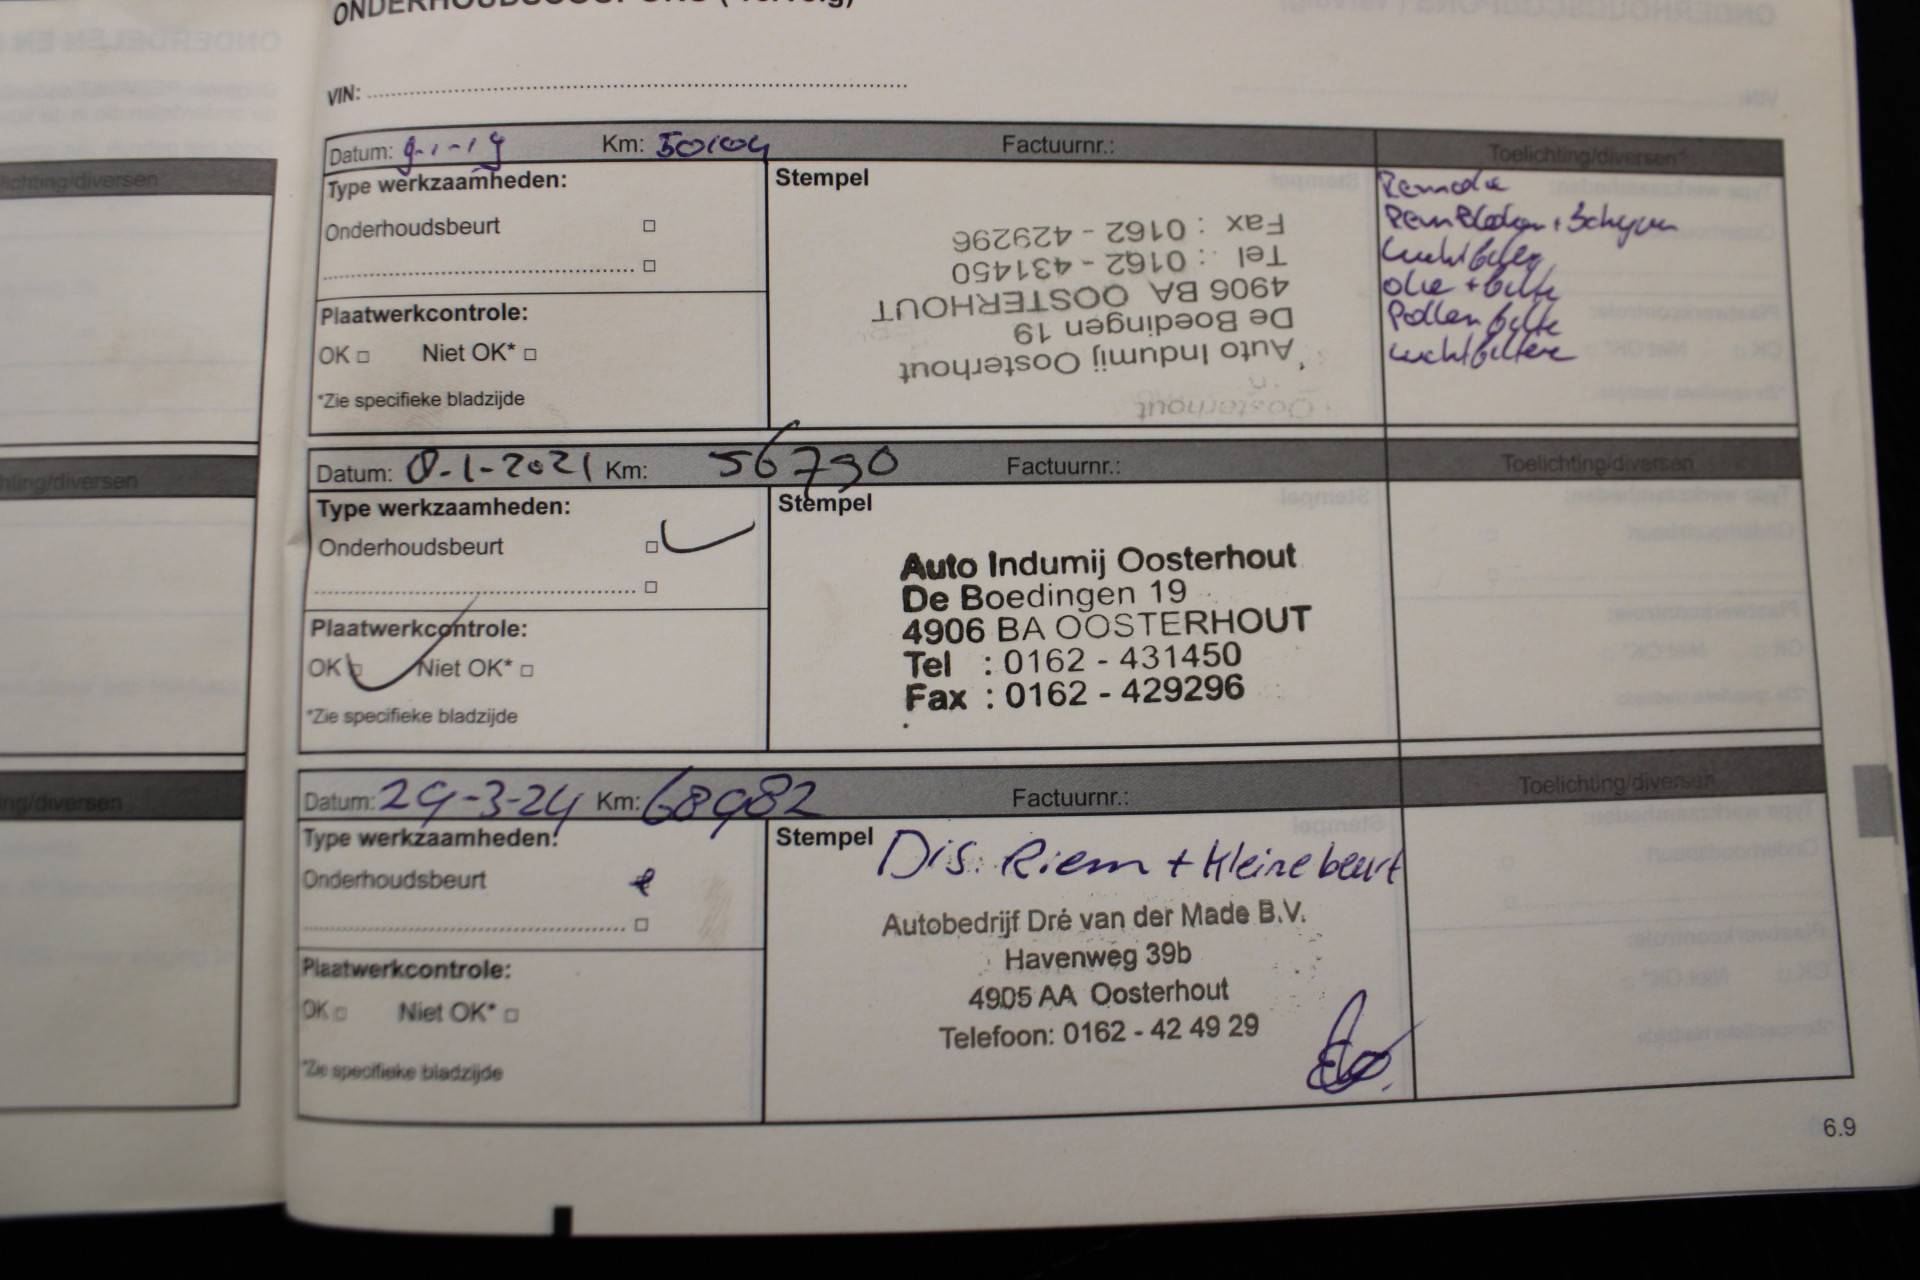 ONDERHOUDSCOUPONS (vervolg)
VIN:
Datum: 9-1-19 Km: 50104 Factuurnr.: Toelichting/diversen*
Type werkzaamheden:
Onderhoudsbeurt
Plaatwerkcontrole:
OK Niet OK*
*Zie specifieke bladzijde
Stempel
Auto Indumij Oosterhout
De Boedingen 19
4906 BA OOSTERHOUT
Tel : 0162 - 431450
Fax : 0162 - 429296
Oosterhout
Remolie
Remblokken + Schyven
Luchtfilter
olie + filte
Pollen filte
Luchtfiltere
Datum: 8-1-2021 Km: 56790 Factuurnr.: Toelichting/diversen
Type werkzaamheden:
Onderhoudsbeurt
Plaatwerkcontrole:
OK Niet OK*
*Zie specifieke bladzijde
Stempel
Auto Indumij Oosterhout
De Boedingen 19
4906 BA OOSTERHOUT
Tel : 0162 - 431450
Fax : 0162 - 429296
Datum: 29-3-24 Km: 68982 Factuurnr.: Toelichting/diversen
Type werkzaamheden:
Onderhoudsbeurt
Plaatwerkcontrole:
OK Niet OK*
*Zie specifieke bladzijde
Stempel
Dis. Riem + Kleine beurt
Autobedrijf Dré van der Made B.V.
Havenweg 39b
4905 AA Oosterhout
Telefoon: 0162 - 42 49 29
6.9